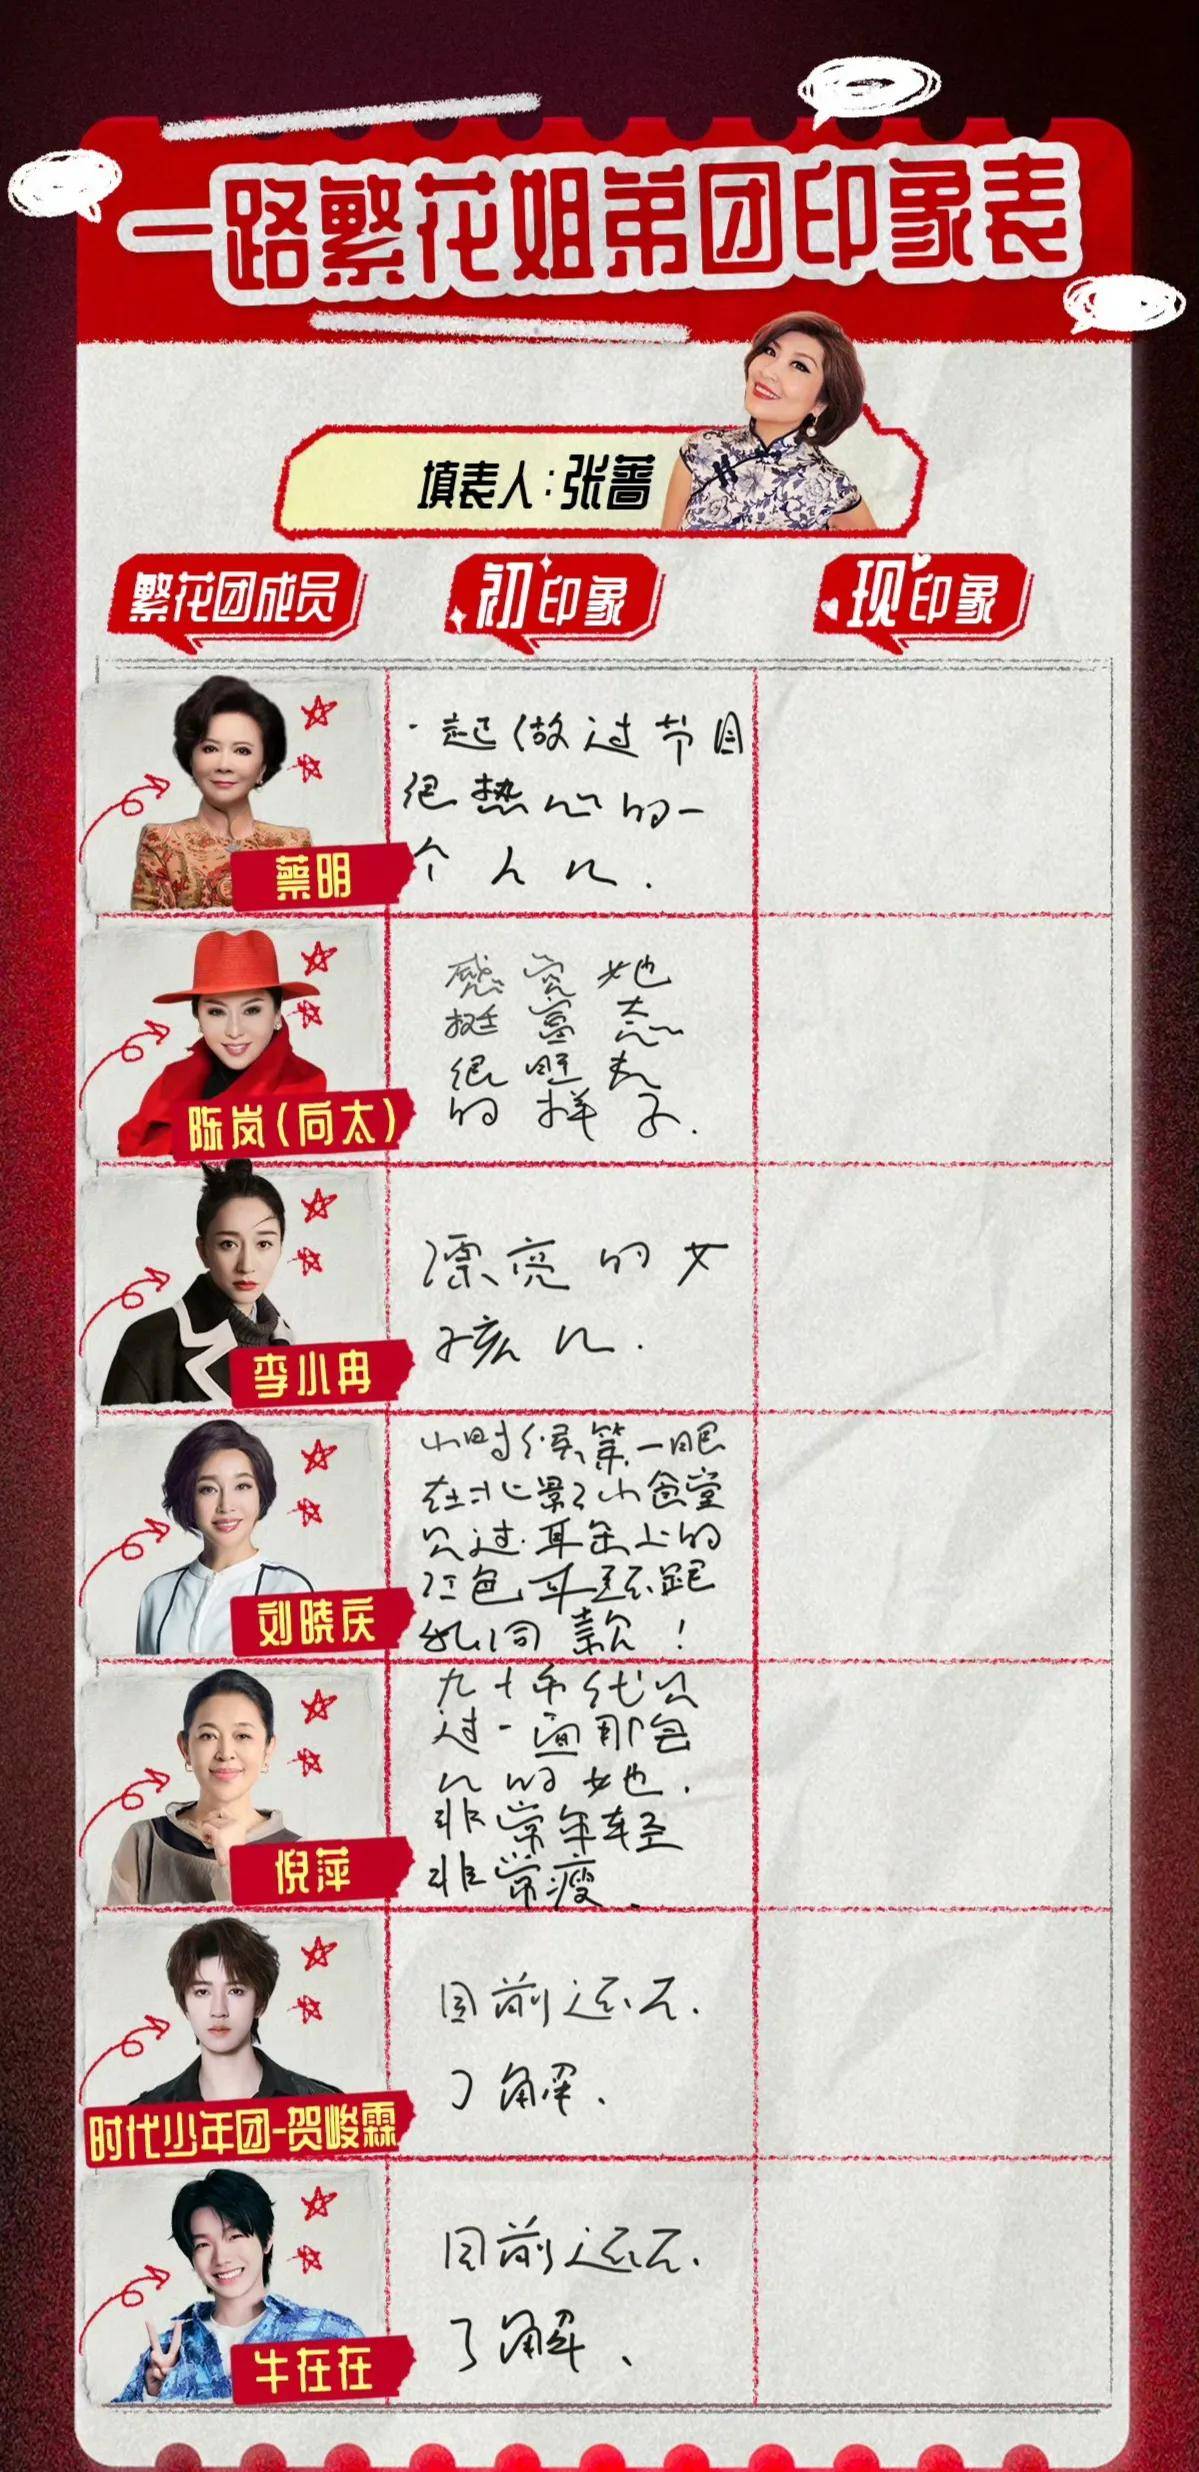 一路繁花姐弟团印象表
填表人:张蔷
繁花团成员
初印象
现印象
蔡明
一起做过节目
很热心的一
个人儿.
陈岚(向太)
感觉她
挺富态
很旺夫
的样子.
李小冉
漂亮的女
孩儿.
刘晓庆
小时候第一眼
在北影小食堂
见过.耳朵上的
红色耳环跟
我同款!
倪萍
九十年代见
过一面那会
儿的她.
非常年轻
非常瘦.
时代少年团-贺峻霖
目前还不.
了解.
牛在在
目前还不.
了解.